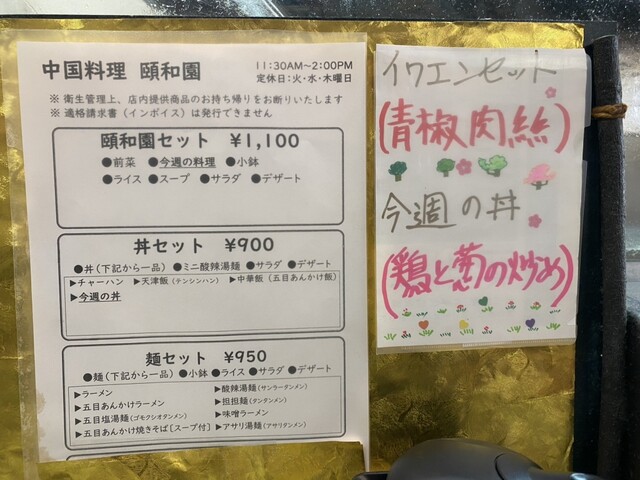 中国料理 頤和園
11:30AM～2:00PM
定休日：火・水・木曜日
※ 衛生管理上、店内提供商品のお持ち帰りをお断りいたします
※ 適格請求書（インボイス）は発行できません
頤和園セット ￥1,100
●前菜 ●今週の料理 ●小鉢
●ライス ●スープ ●サラダ ●デザート
丼セット ￥900
●丼（下記から一品） ●ミニ酸辣湯麺 ●サラダ ●デザート
▶チャーハン ▶天津飯（テンシンハン） ▶中華飯（五目あんかけ飯）
▶今週の丼
麺セット ￥950
●麺（下記から一品） ●小鉢 ●ライス ●サラダ ●デザート
▶ラーメン
▶五目あんかけラーメン
▶五目塩湯麺（ゴモクシオタンメン）
▶五目あんかけ焼きそば［スープ付］
▶酸辣湯麺（サンラータンメン）
▶担担麺（タンタンメン）
▶味噌ラーメン
▶アサリ湯麺（アサリタンメン）
イワエンセット
(青椒肉絲)
今週の丼
(鶏と葱の炒め)